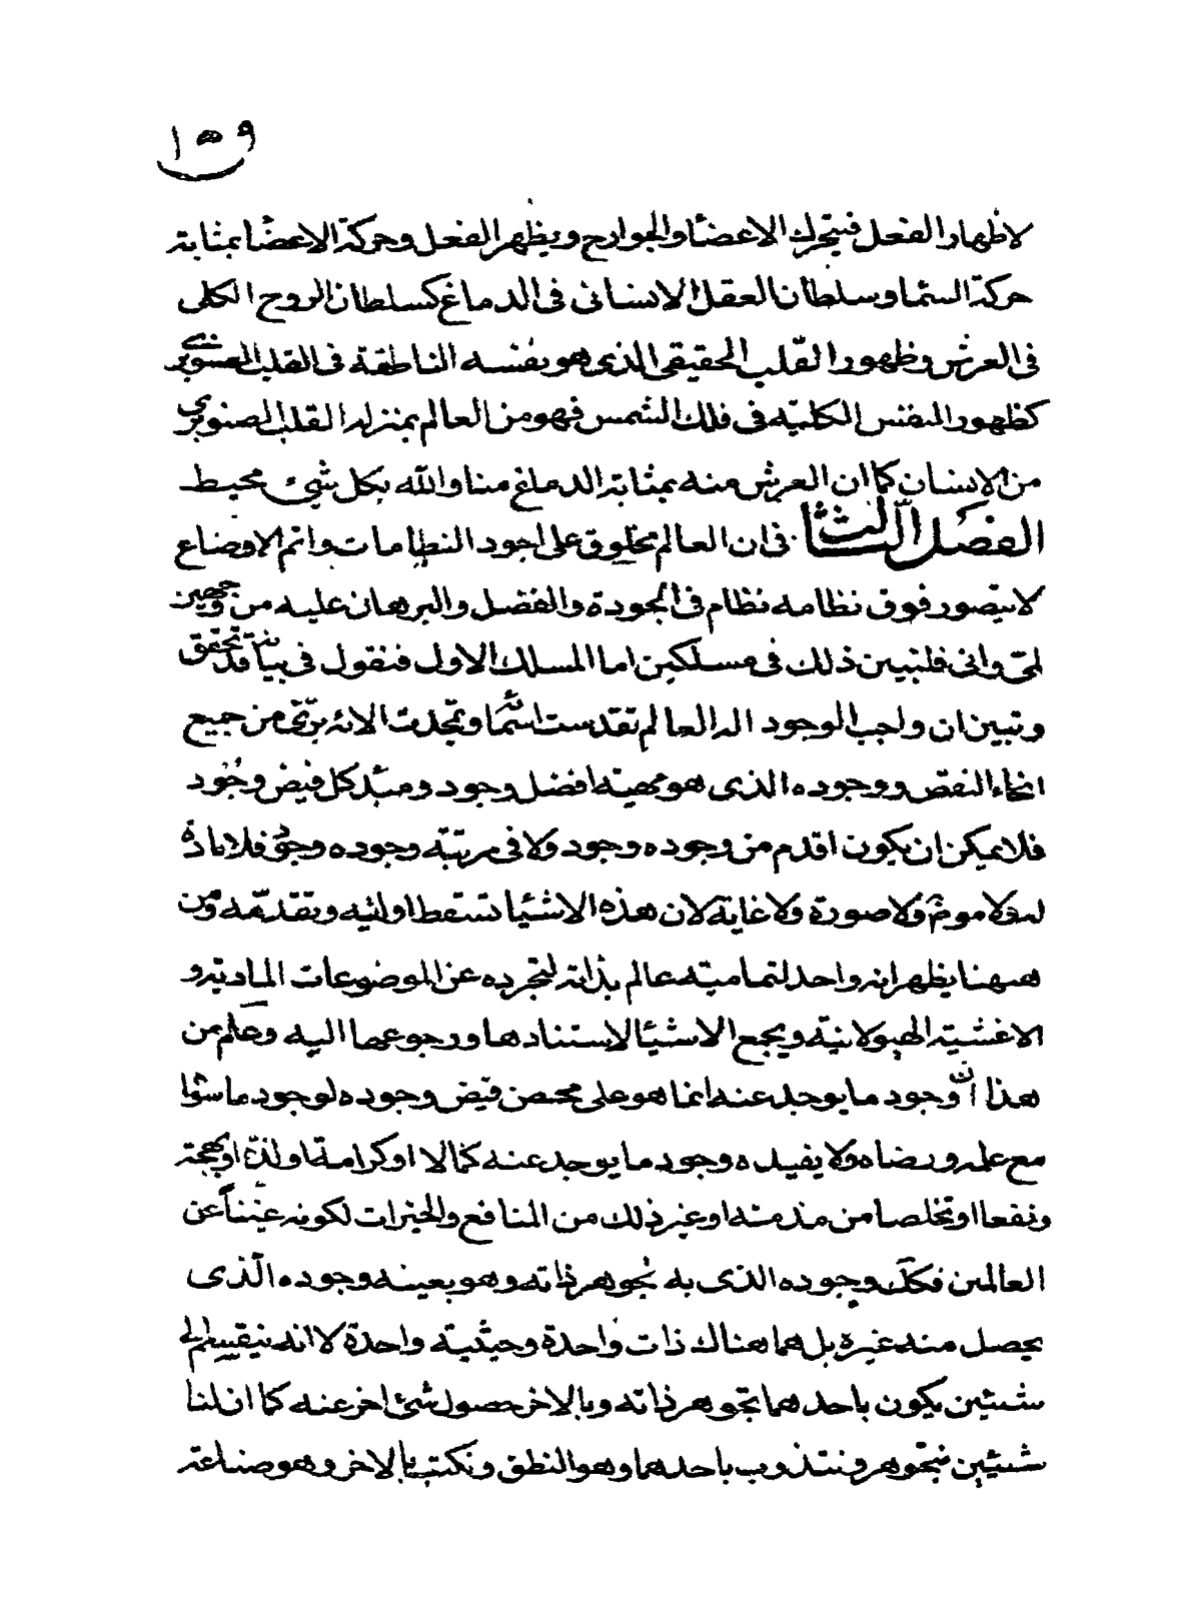 ١٥٩
لاظهار الفعل فيتحرك الاعضا والجوارح ويظهر الفعل وحركة الاعضا بمثابة
حركة السما وسلطان العقل الانسانى فى الدماغ كسلطان الروح الكلى
فى العرش وظهور القلب الحقيقى الذى هو نفسه الناطقة فى القلب الصنوبرى
كظهور النفس الكلية فى فلك الشمس فهو من العالم بمنزلة القلب الصنوبرى
من الانسان كما ان العرش منه بمثابة الدماغ منا والله بكل شئ محيط
الفصل الثالث فى ان العالم مخلوق على اجود النظامات واتم الاوضاع
لا يتصور فوق نظامه نظام فى الجودة والفضل والبرهان عليه من وجهين
لمى وانى فلنبين ذلك فى مسلكين اما المسلك الاول فنقول فى بيانه قد تحقق
وتبين ان واجب الوجود اله العالم تقدست اسمائه وتمجدت الائه برئ من جميع
انحاء النقص ووجوده الذى هو مهيته افضل وجود ومبدء كل فيض وجود
فلا يمكن ان يكون اقدم من وجوده وجود ولا فى مرتبة وجوده وجود فلا مادة
له ولا موضوع ولا صورة ولا غاية لان هذه الاشيا تسقط اوليته وتقدمه ومن
ههنا يظهر انه واحد لتماميته عالم بذاته لتجرده عن الموضوعات المادية و
الاغشية الهيولانية وبجميع الاشيا لاستنادها ورجوعها اليه وعلم من
هذا ان وجود ما يوجد عنه انما هو على محض فيض وجوده لوجود ما سواه
مع علمه ورضاه ولا يفيده وجود ما يوجد عنه كمالا او كرامة او لذة او بهجة
ونفعا او تخلصا من مذمة او غير ذلك من المنافع والخيرات لكونه غنيا عن
العالمين فكل وجوده الذى به تجوهر ذاته وهو بعينه وجوده الذى
يحصل منه غيره بل هما هناك ذات واحدة وحيثية واحدة لا انه ينقسم الى
شيئين يكون باحدهما تجوهر ذاته وبالاخر حصول شئ اخر عنه كما ان لنا
شيئين نتجوهر ونتذوب باحدهما وهو النطق ونكتب بالاخر وهو صناعة